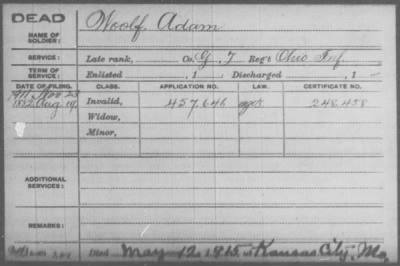 DEAD
NAME OF SOLDIER:
Woolf, Adam
SERVICE:
Late rank, Co. G, 7 Reg't Ohio Inf.
TERM OF SERVICE:
Enlisted , 1 Discharged , 1
DATE OF FILING. CLASS. APPLICATION NO. LAW. CERTIFICATE NO.
1882 Aug 19, Invalid, 457,646 248,458
Widow,
Minor,
ADDITIONAL SERVICES:
REMARKS:
Died May 12, 1915, at Kansas City, Mo.